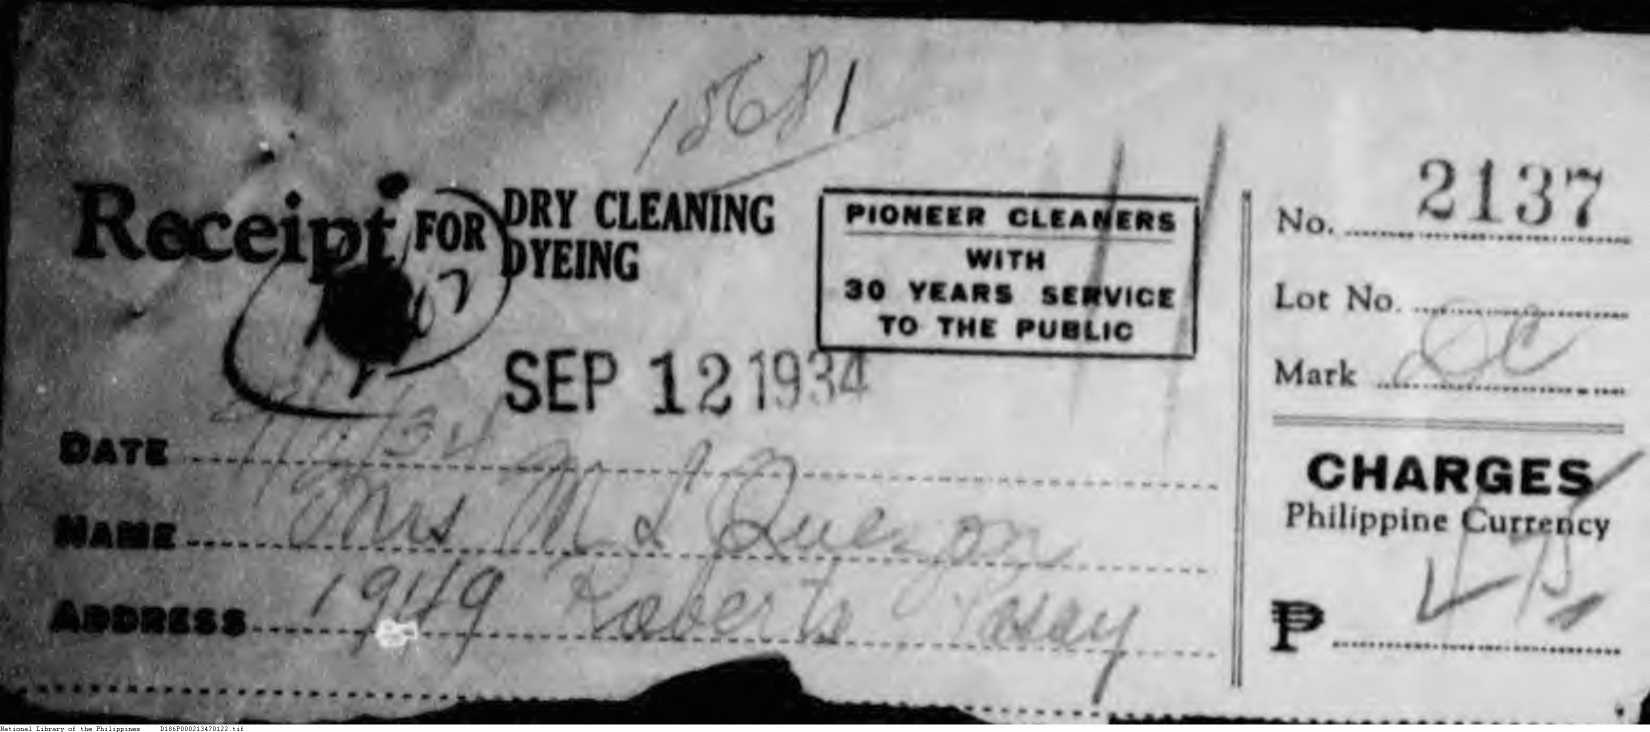 15681
Receipt FOR DRY CLEANING
DYEING
PIONEER CLEANERS
WITH
30 YEARS SERVICE
TO THE PUBLIC
No. 2137
Lot No.
Mark DC
SEP 12 1934
DATE
NAME Mrs M L Quezon
ADDRESS 1949 Roberts Pasay
CHARGES
Philippine Currency
₱
National Library of the Philippines D186P000213470122.tif